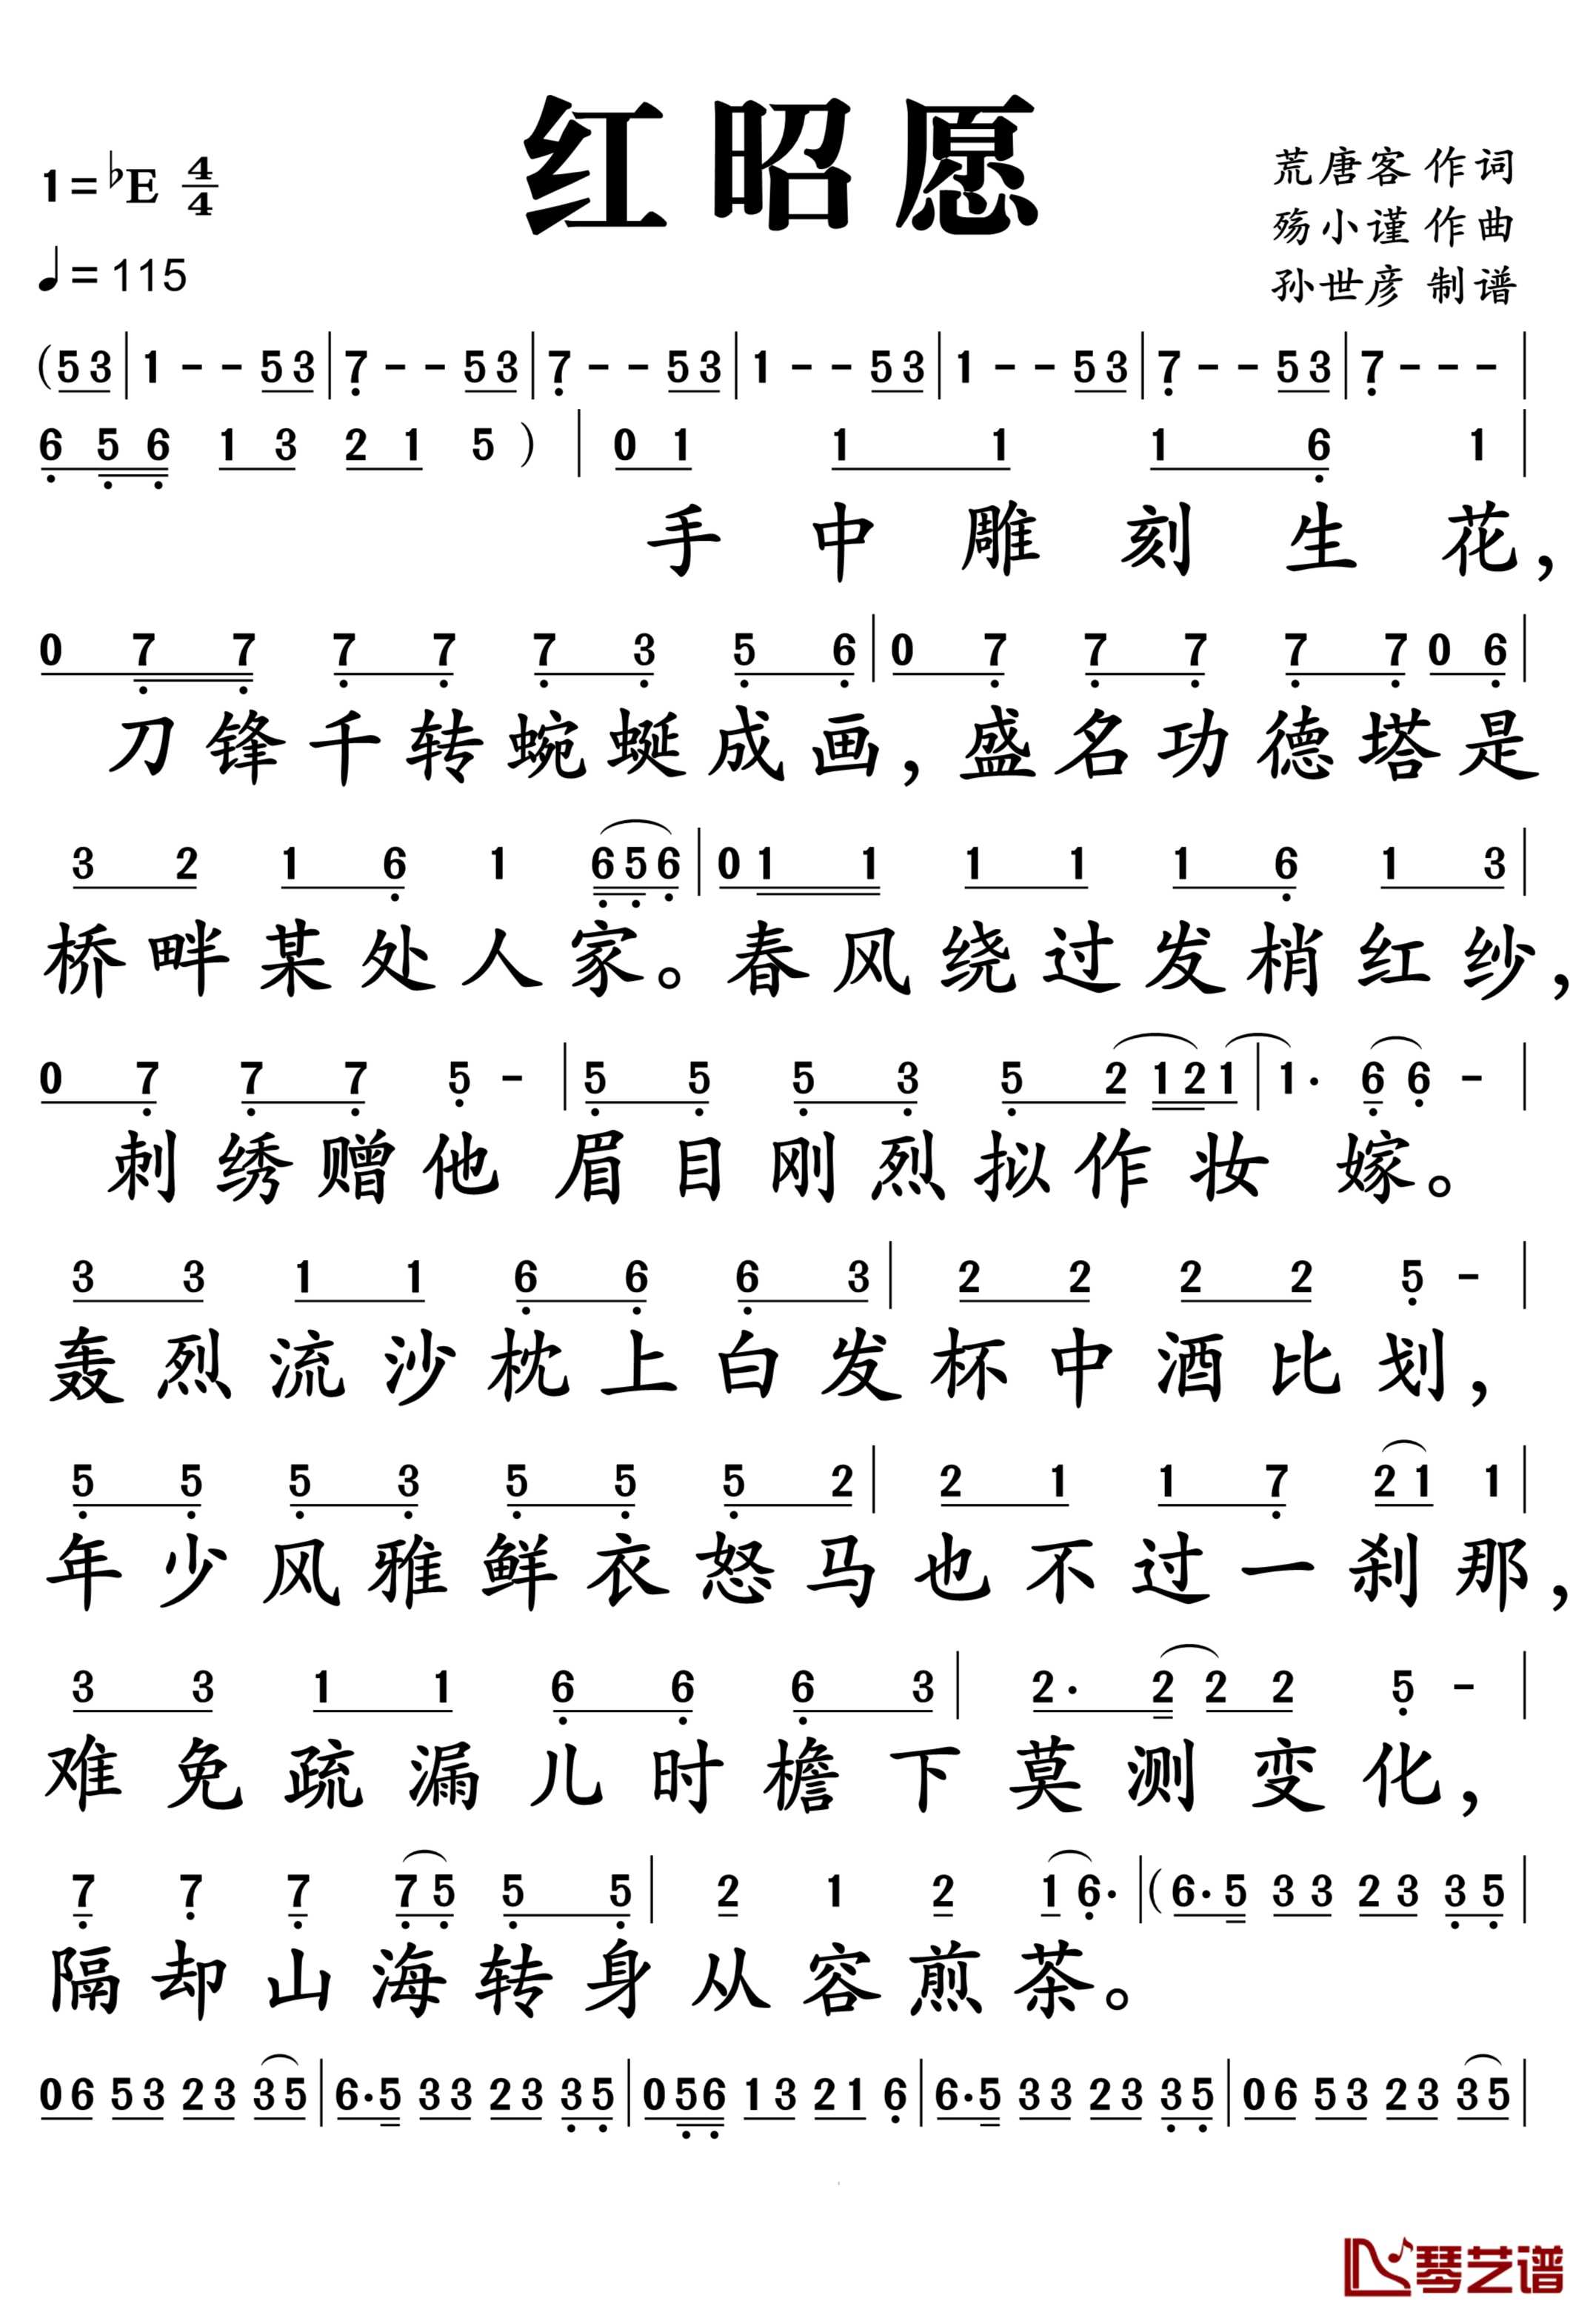 红昭愿
1=♭E 4/4
♩=115
荒唐客 作词
殇小谨 作曲
孙世彦 制谱
(53|1--53|7--53|7--53|1--53|1--53|7--53|7---|
6 56 13 21 5)|01 11 16 1|
手中雕刻生花，
077 77 73 56|07 77 77 06|
刀锋千转蜿蜒成画，盛名功德塔是
32 16 1 656|011 11 16 13|
桥畔某处人家。春风绕过发梢红纱，
07 77 5-|55 53 52 121|1· 6 6-|
刺绣赠他眉目刚烈拟作妆嫁。
33 11 66 63|22 22 5-|
轰烈流沙枕上白发杯中酒比划，
55 53 55 52|21 17 21 1|
年少风雅鲜衣怒马也不过一刹那，
33 11 66 63|2·2 22 5-|
难免疏漏儿时檐下莫测变化，
7 7 7 75 55|2 1 2 16·|(6·5 33 23 35|
隔却山海转身从容煎茶。
06 53 23 35|6·5 33 23 35|056 13 21 6|6·5 33 23 35|06 53 23 35|
琴艺谱